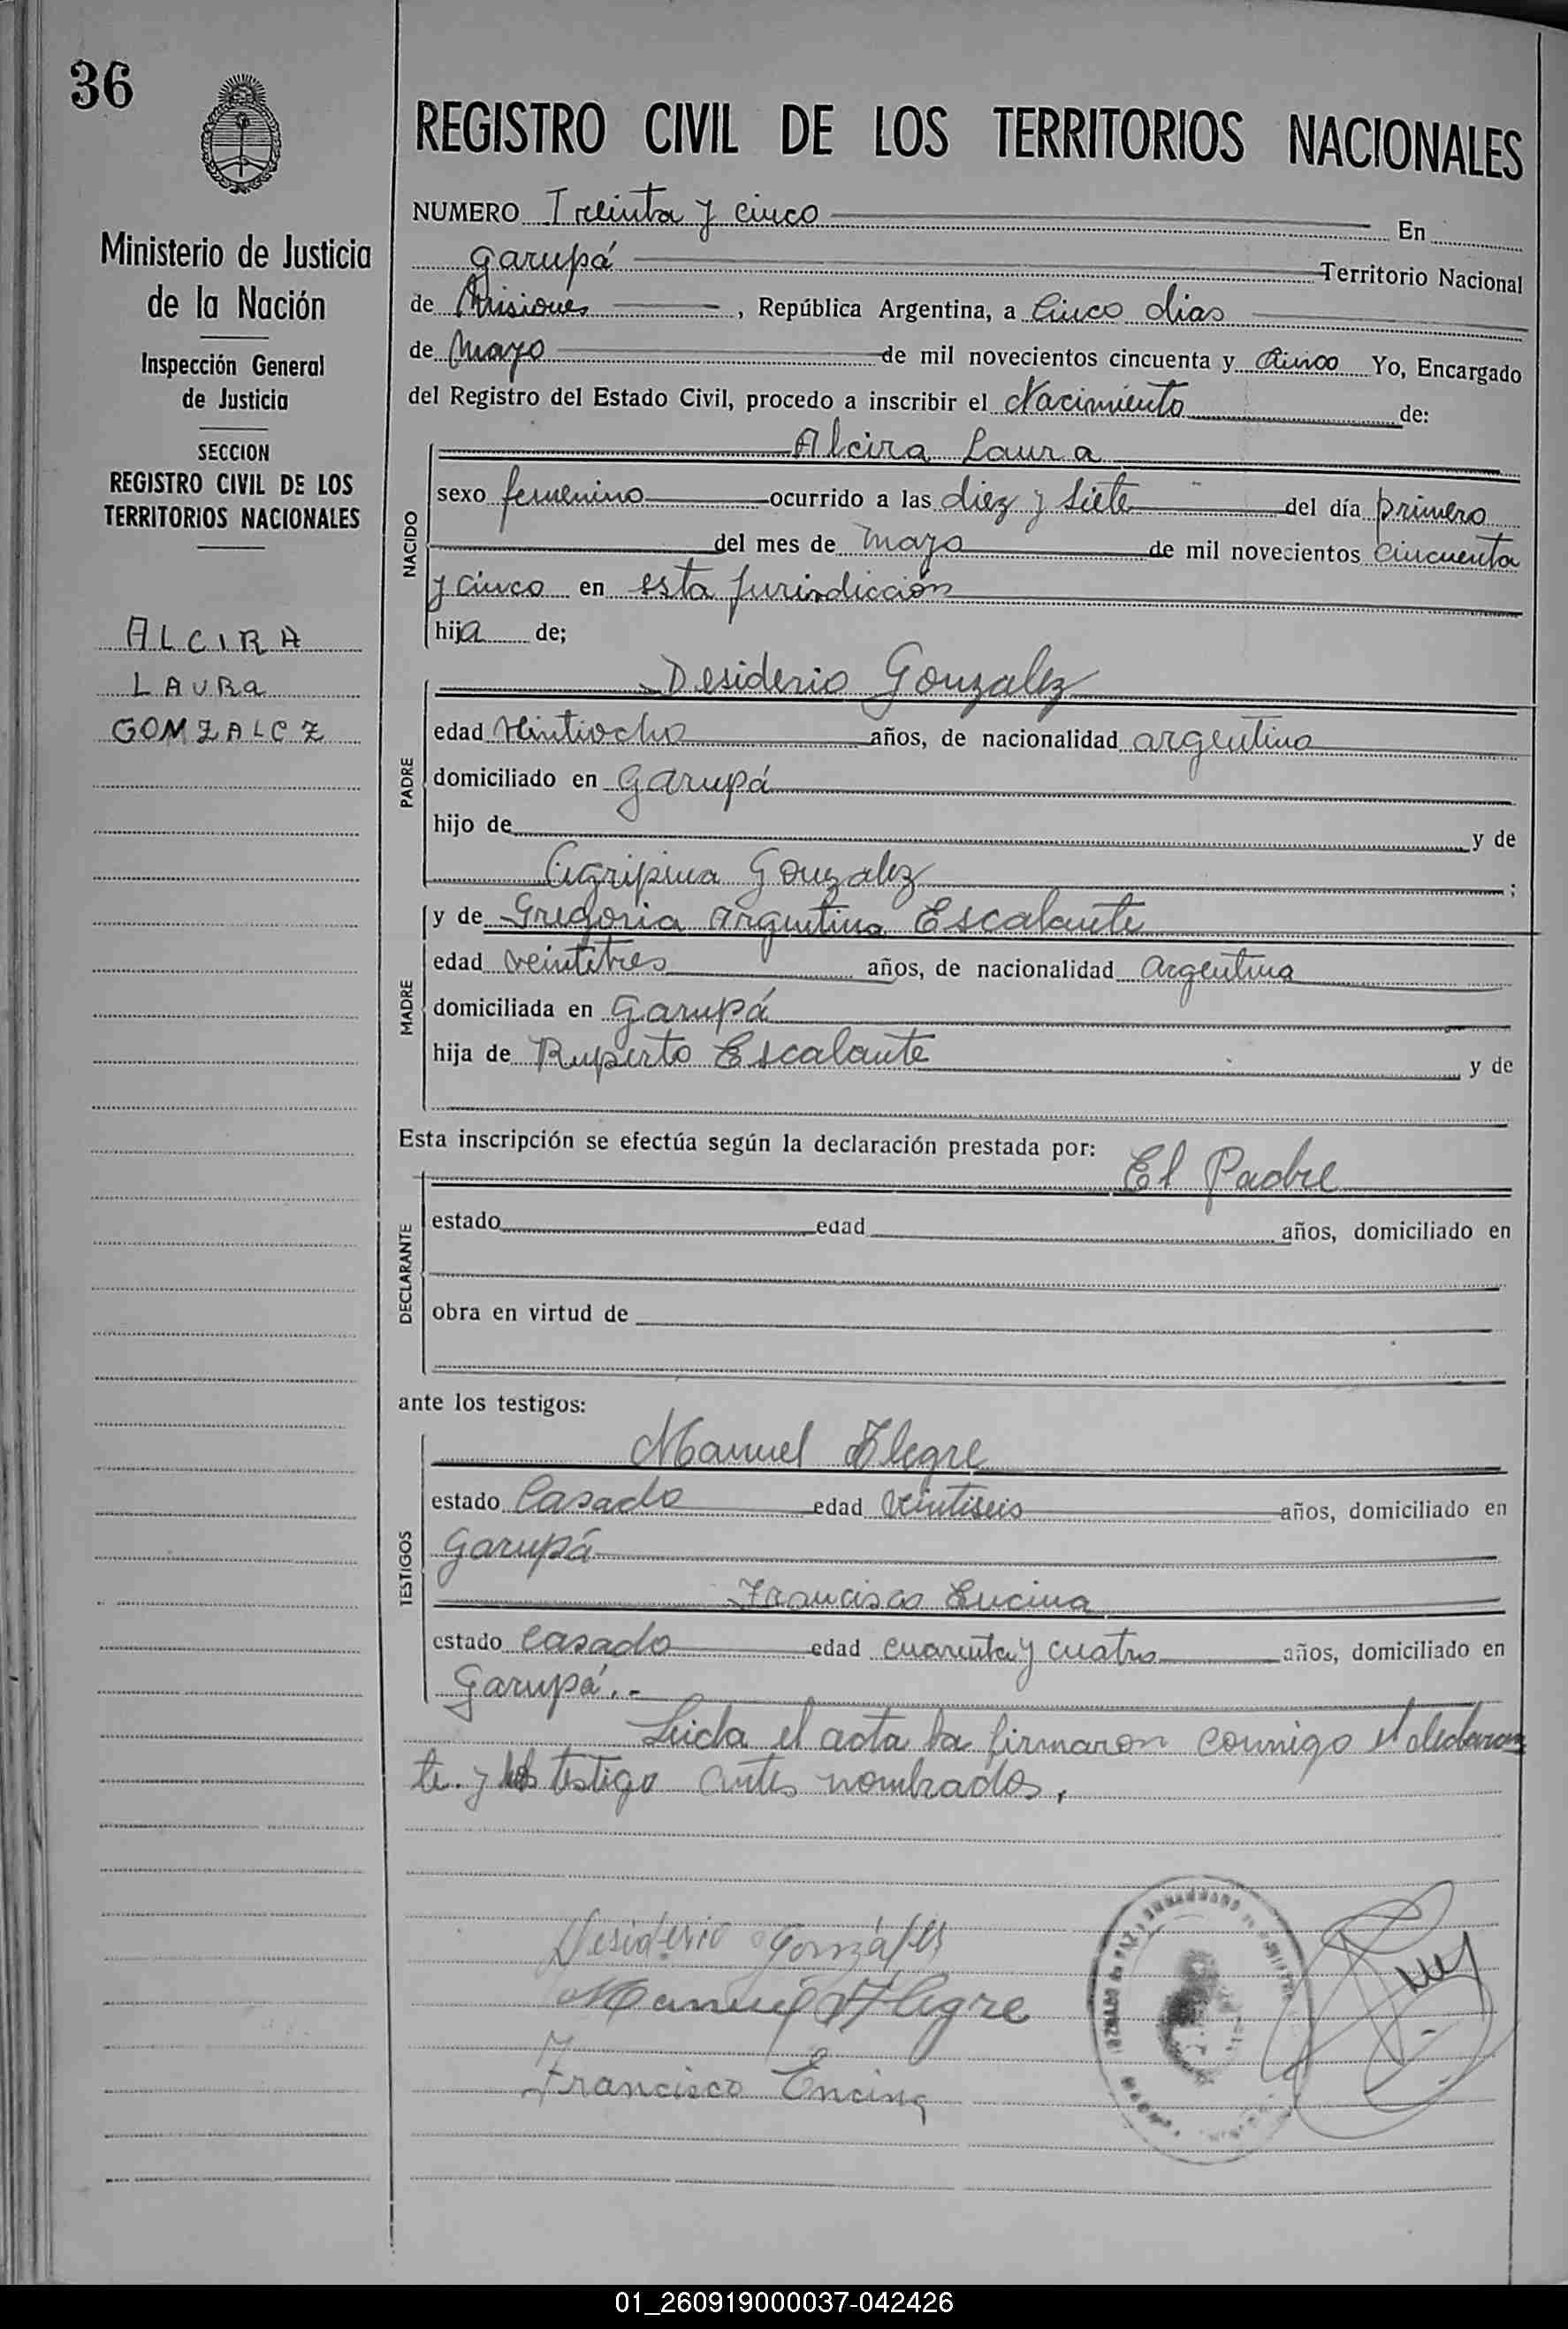 36
Ministerio de Justicia
de la Nación
Inspección General
de Justicia
SECCION
REGISTRO CIVIL DE LOS
TERRITORIOS NACIONALES
ALCIRA
LAURa
GOMZALEZ
REGISTRO CIVIL DE LOS TERRITORIOS NACIONALES
NUMERO Treinta y cinco En
Garupá Territorio Nacional
de Misiones , República Argentina, a Cinco dias
de Mayo de mil novecientos cincuenta y Cinco Yo, Encargado
del Registro del Estado Civil, procedo a inscribir el Nacimiento de:
NACIDO
Alcira Laura
sexo femenino ocurrido a las diez y siete del día primero
del mes de mayo de mil novecientos cincuenta
y cinco en esta Jurisdicción
hija de;
PADRE
Desiderio Gonzalez
edad veintiocho años, de nacionalidad argentino
domiciliado en Garupá
hijo de y de
Agripina Gonzalez ;
MADRE
y de Gregoria Argentina Escalante
edad veintitres años, de nacionalidad argentina
domiciliada en Garupá
hija de Ruperto Escalante y de
Esta inscripción se efectúa según la declaración prestada por:
DECLARANTE
El Padre
estado edad años, domiciliado en
obra en virtud de
ante los testigos:
TESTIGOS
Manuel Alegre
estado Casado edad veintiseis años, domiciliado en
Garupá
Francisco Encina
estado Casado edad cuarenta y cuatro años, domiciliado en
Garupá.-
Leida el acta la firmaron conmigo el declaran
te y los testigo antes nombrados.
Desiderio Gonzáles
Manuel Alegre
Francisco Encina
01_260919000037-042426